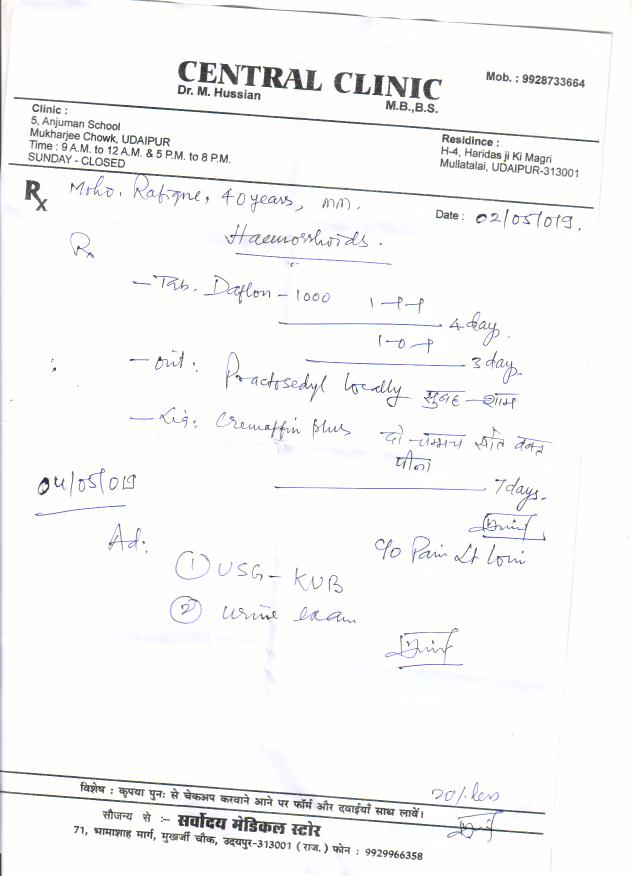 CENTRAL CLINIC
Mob. : 9928733664
Dr. M. Hussian
M.B.,B.S.
Clinic :
5, Anjuman School
Mukharjee Chowk, UDAIPUR
Time : 9 A.M. to 12 A.M. & 5 P.M. to 8 P.M.
SUNDAY - CLOSED
Residince :
H-4, Haridas ji Ki Magri
Mullatalai, UDAIPUR-313001
Rx Moho. Rafique, 40 years, mm.
Date : 02/05/019.
Rx Haemorrhoids.
- Tab. Daflon - 1000 1-1-1
4 day.
1-0-1
3 day.
- oint: Practosedyl locally सुबह - शाम
- Liq: Cremaffin plus दो चम्मच सोते वक्त
पीना
7 days.
04/05/019
Ad: c/o Pain Lt Loin
① USG - KUB
② urine exam
20%. less
विशेष : कृपया पुनः से चेकअप करवाने आने पर फॉर्म और दवाईयाँ साथ लावें।
सौजन्य से :- सर्वोदय मेडिकल स्टोर
71, भामाशाह मार्ग, मुखर्जी चौक, उदयपुर-313001 ( राज. ) फोन : 9929966358